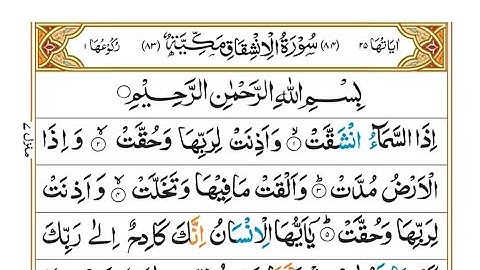 اٰيَاتُهَا ٢٥ (٨٤) سُوْرَةُ الْاِنْشِقَاقِ مَكِّيَّةٌ (٨٣) رُكُوْعُهَا ١
بِسْمِ اللّٰهِ الرَّحْمٰنِ الرَّحِيْمِ
اِذَا السَّمَآءُ انْشَقَّتْ ۙ﴿١﴾ وَاَذِنَتْ لِرَبِّهَا وَحُقَّتْ ۙ﴿٢﴾ وَاِذَا
الْاَرْضُ مُدَّتْ ۙ﴿٣﴾ وَاَلْقَتْ مَا فِيْهَا وَتَخَلَّتْ ۙ﴿٤﴾ وَاَذِنَتْ
لِرَبِّهَا وَحُقَّتْ ؕ﴿٥﴾ يٰۤاَيُّهَا الْاِنْسَانُ اِنَّكَ كَادِحٌ اِلٰى رَبِّكَ
منزل ٧